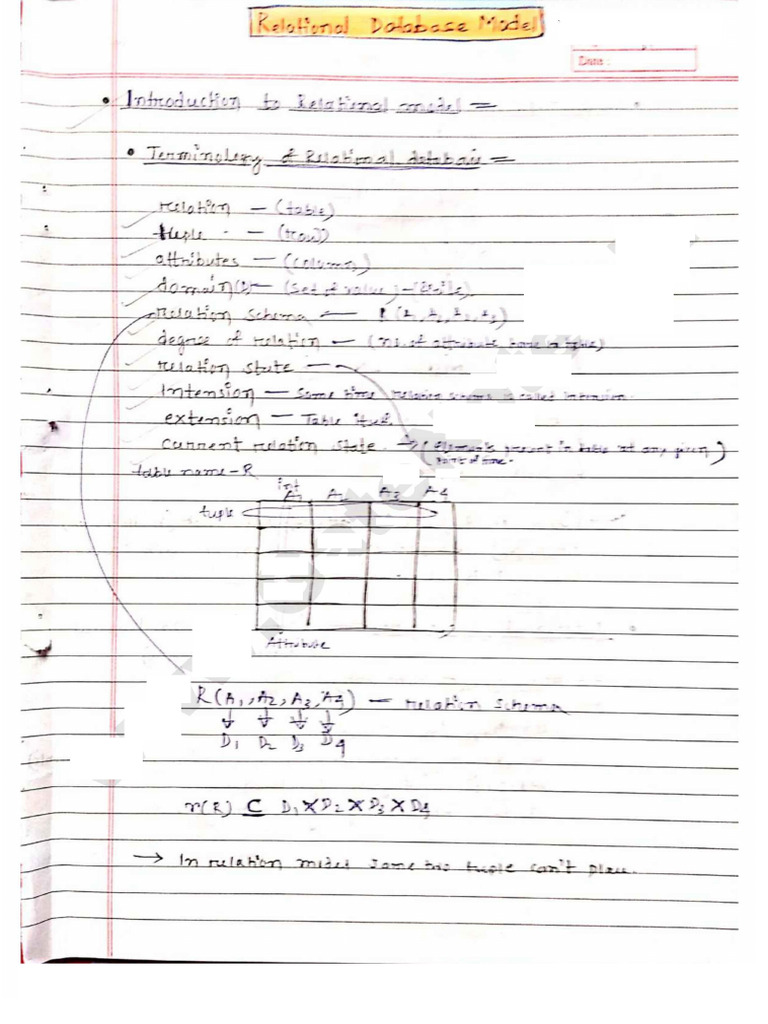 Relational Database Model
Date :
• Introduction to Relational model =
• Terminology of Relational database =
relation — (table)
tuple - — (row)
attributes — (columns)
domain(D) — (set of value) -
relation schema —
degree of relation — (no. of attribute in table)
relation state —
Intension — Some time relation schema is called intension.
extension — Table itself.
current relation state → (Elements present in table at any given point of time.)
table name - R
int
A1 A2 A3 A4
tuple
Attribute
R(A1, A2, A3, A4) — relation schema
D1 D2 D3 D4
r(R) ⊆ D1 X D2 X D3 X D4
→ In relation model same two tuple can't place.